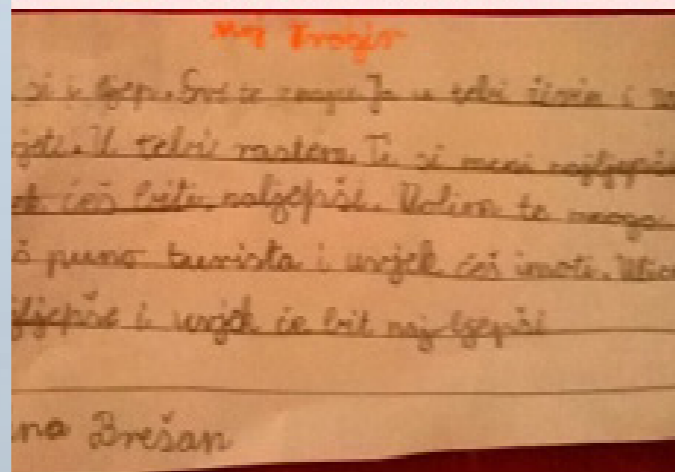 Moj Trogir
si i lijep. Svi te znaju. Ja u tebi živim i
U tebi rastem. Ti si meni najljepši
ćeš biti naljepši. Volim te mnogo
puno turista i uvjek ćeš imati.
i uvjek će bit najljepši
Brešan